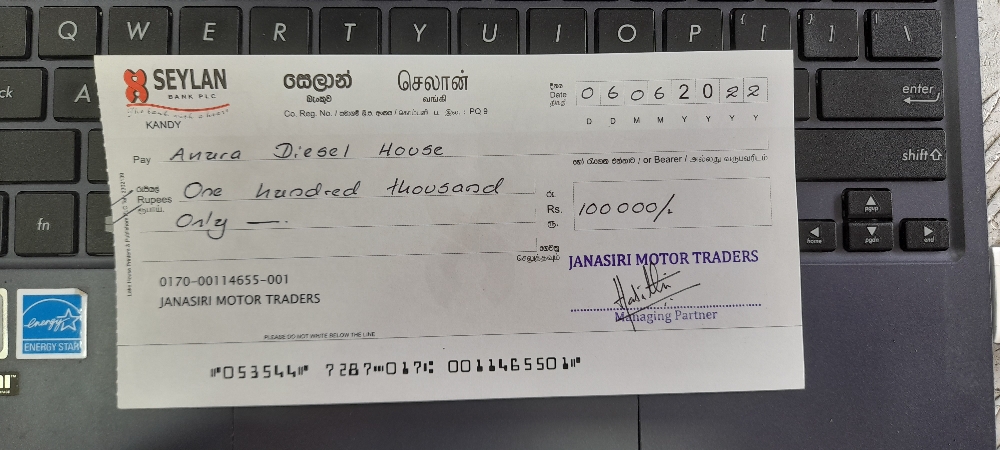 Q W E R T Y U I O P { [ } ] | \
A
enter
shift
fn
pgup
home pgdn end
SEYLAN
BANK PLC
KANDY
සෙලාන් செலான்
බැංකුව வங்கி
දිනය
Date
திகதி
0 6 0 6 2 0 2 2
D D M M Y Y Y Y
Pay Anura Diesel House
or Bearer /
රුපියල්
Rupees
ரூபாய்
One hundred thousand
Only —.
රු.
Rs.
ரூ.
100 000/-
ගෙවනු
செலுத்தவும்
JANASIRI MOTOR TRADERS
Managing Partner
0170-00114655-001
JANASIRI MOTOR TRADERS
PLEASE DO NOT WRITE BELOW THE LINE
⑈053544⑈ 7287⑉017⑆ 0011465501⑈
energy
ENERGY STAR